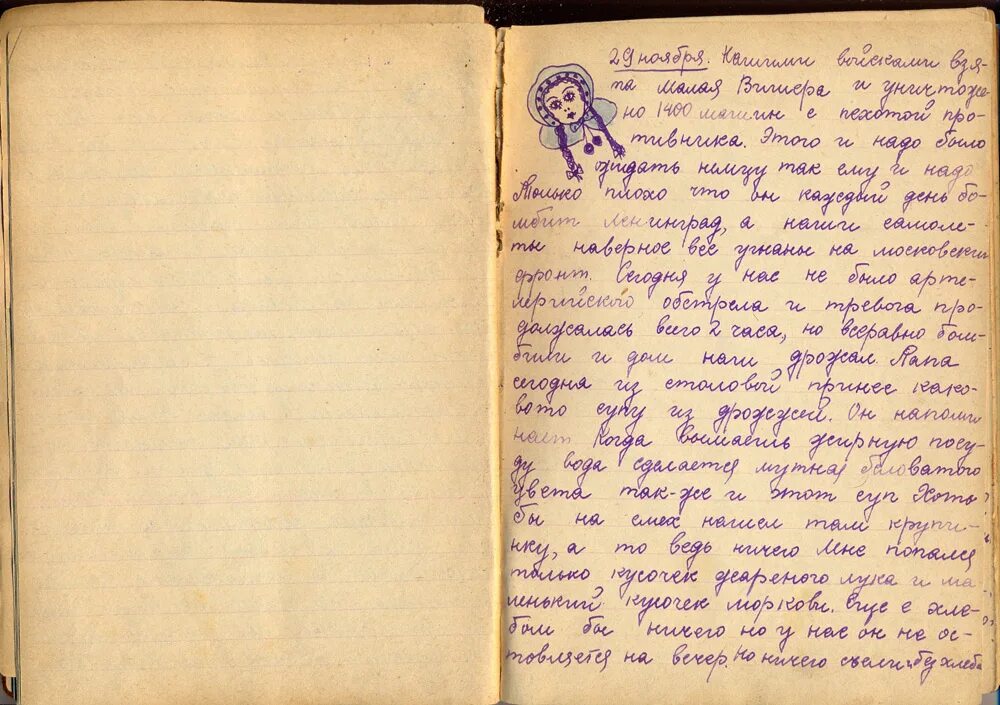 29 ноября. Нашими войсками взя-
та малая Вишера и уничтоже
но 1400 машин с пехотой про-
тивника. Этого и надо было
ожидать немцу так ему и надо
Только плохо что он каждый день бо-
мбит Ленинград, а наши самоле-
ты наверное все угнаны на московский
фронт. Сегодня у нас не было арте-
лерийского обстрела и тревога про-
должалась всего 2 часа, но всеравно бом-
били и дом наш дрожал. Папа
сегодня из столовой принес како-
вото супу из дрожжей. Он напоми
нает когда вымаешь жирную посу-
ду вода сделается мутная беловатого
цвета так-же и этот суп Хоть
бы на смех нашел там крупи-
нку, а то ведь ничего Мне попался
только кусочек жареного лука и ма-
ленький кусочек моркови. Еще с хле-
бом бы ничего но у нас он не ос-
товляется на вечер, но ничего съели и без хлеба